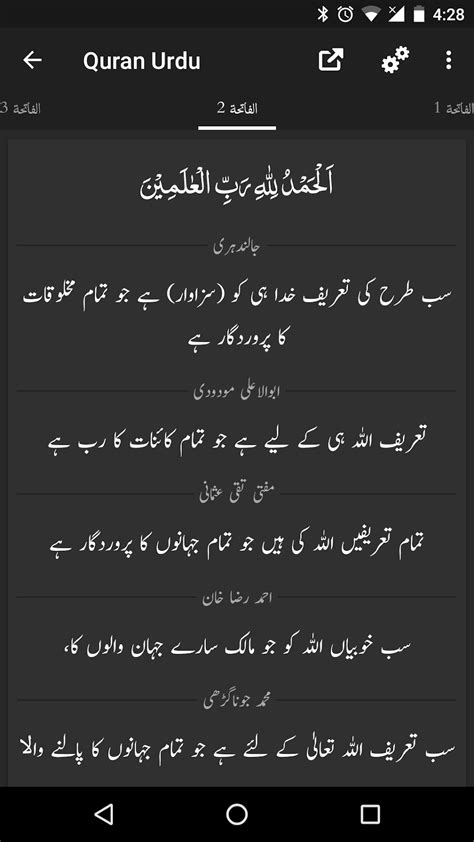 4:28
Quran Urdu
الفاتحة 1
الفاتحة 2
الفاتحة 3
اَلْحَمْدُ لِلّٰهِ رَبِّ الْعٰلَمِيْنَ
جالندہری
سب طرح کی تعریف خدا ہی کو (سزاوار) ہے جو تمام مخلوقات
کا پروردگار ہے
ابوالاعلی مودودی
تعریف اللہ ہی کے لیے ہے جو تمام کائنات کا رب ہے
مفتی تقی عثمانی
تمام تعریفیں اللہ کی ہیں جو تمام جہانوں کا پروردگار ہے
احمد رضا خان
سب خوبیاں اللہ کو جو مالک سارے جہان والوں کا،
محمد جوناگڑھی
سب تعریف اللہ تعالیٰ کے لئے ہے جو تمام جہانوں کا پالنے والا